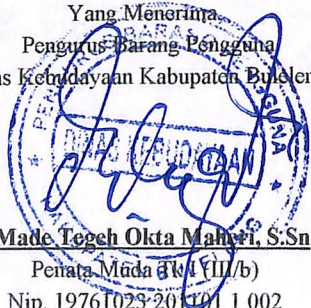 Yang Menerima
Pengurus Barang Pengguna
as Kebudayaan Kabupaten Bulelen
Made Tegeh Okta Maheri, S.Sn
Penata Muda Tk I (III/b)
Nip. 19761023 201101 1 002
DINAS KEBUDAYAAN